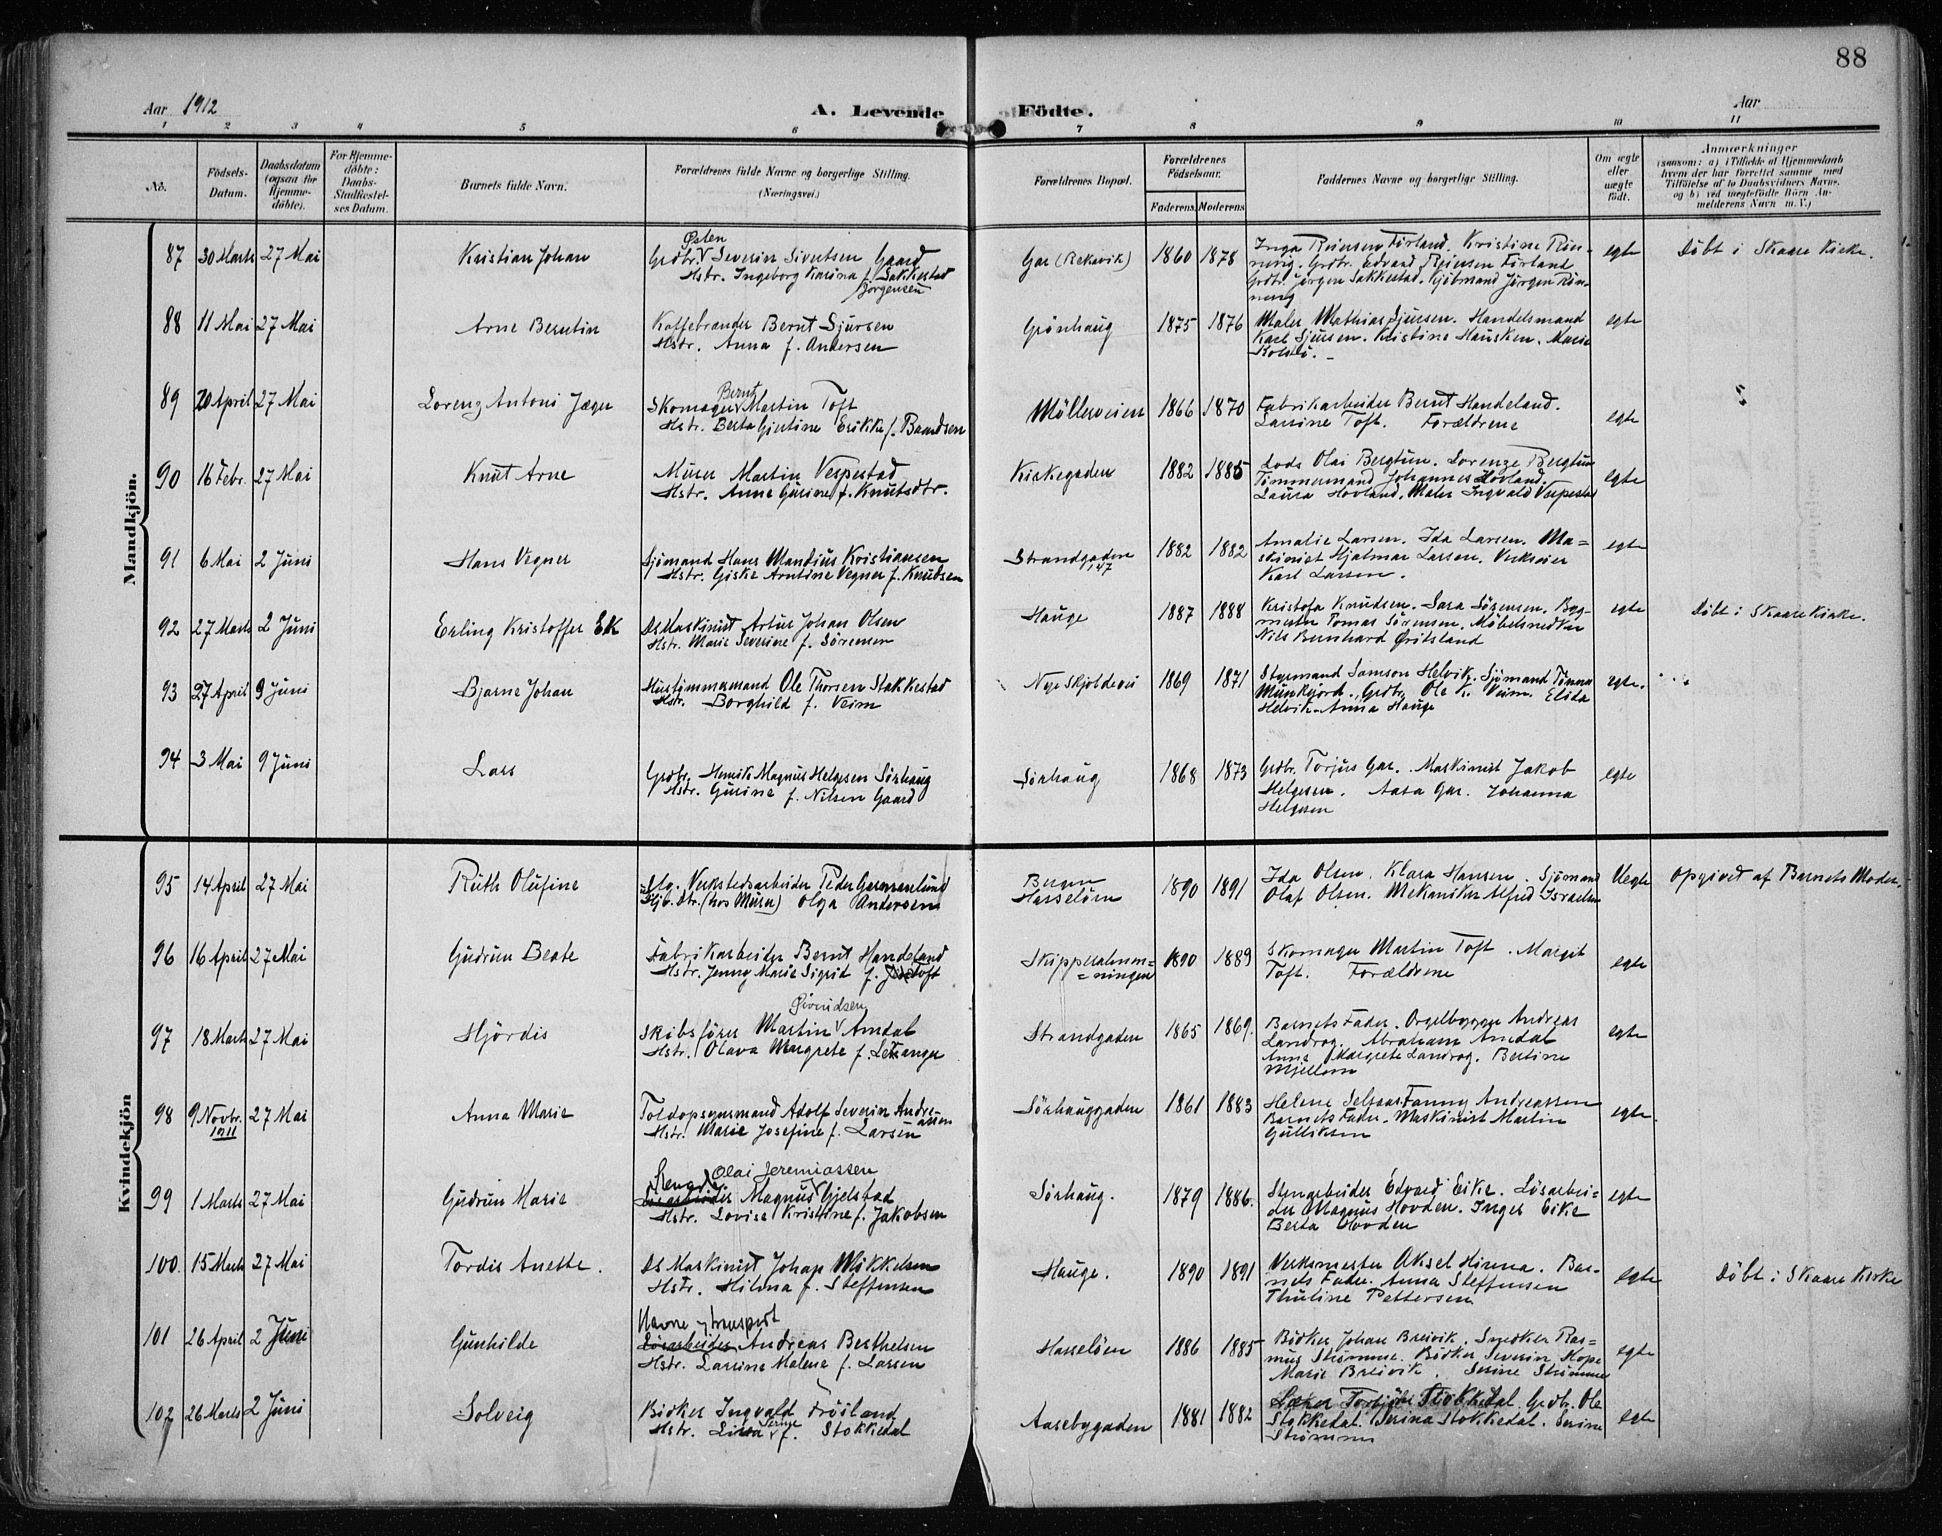 88
Aar 1912
A. Levende Födte.
Aar
1 2 3 4 5 6 7 8 9 10 11
No. Födsels-Datum. Daabsdatum (ogsaa for Hjemme-döbte). For Hjemme-döbte: Daabs-Stadfæstel-ses Datum. Barnets fulde Navn. Forældrenes fulde Navne og borgerlige Stilling. (Næringsvei.) Forældrenes Bopæl. Forældrenes Födselsaar. Faderens. Moderens Faddernes Navne og borgerlige Stilling. Om ægte eller uægte født. Anmærkninger
(saasom: a) i Tilfælde af Hjemmedaab
hvem der har forrettet samme med
Tilföielse af to Daabsvidners Navne,
og b) ved uægtefödte Börn An-
melderens Navn m. V.)
Mandkjön.
87 30 Marts 27 Mai Kristian Johan Østen
Grdbr. V Severin Sivertsen Gaard
Hstr. Ingeborg Karina f. Sakkestad
Jørgensen
Gar (Rekavik) 1860 1878 Inga Reiersen Førland. Kristine Røn-
nevig. Grdbr. Edvard Reiersen Førland
Grdbr. Jørgen Sakkestad. Kjøbmand Jørgen Røn-
nevig
egte Döbt i Skaare Kirke.
88 11 Mai 27 Mai Arne Berntin Kaffebrænder Bernt Sjursen
Hstr. Anna f. Andersen
Grønhaug 1875 1876 Maler Mathias Sjursen. Handelsmand
Karl Sjursen. Kristine Hausken. Marie
egte
89 20 April 27 Mai Lorenz Antoni Jæger Bernt
Skomager V Martin Toft
Hstr. Berta Gjertine Erikke f. Baardsen
Möllerveien 1866 1870 Fabrikarbeider Bernt Handeland.
Larsine Toft. Forældrene
egte
90 16 Febr. 27 Mai Knut Arne Murer Martin Vespestad
Hstr. Anne Gurine f. Knutsdtr.
Kirkegaden 1882 1885 Lods Olai Bergtun. Lorenze Bergtun
Tömmermand Johannes Hovland.
Laura Hovland. Maler Ingvald Vespestad
egte
91 6 Mai 2 Juni Hans Vegner Sjömand Hans Mandius Kristiansen
Hstr. Giske Arntine Vegner f. Knudsen
Strandgaden
147
1882 1882 Amalie Larsen. Ida Larsen. Ma=
skinist Hjalmar Larsen. Verkseier
Karl Larsen.
egte
92 27 Marts 2 Juni Erling Kristoffer Ek DsMaskinist Artur Johan Olsen
Hstr. Marie Severine f. Sörensen
Hauge 1887 1888 Kristofa Knudsen. Sara Sørensen. Byg-
mester Tomas Sörensen. Möbelsnedker
Nils Bernhard Gritsland
egte Döbt i Skaare Kirke.
93 27 April 9 Juni Bjarne Johan Hustömmermand Ole Thorsen Stakkestad
Hstr. Borghild f. Veim
Nye Skjoldevei 1869 1871 Styrmand Samson Helvik. Sjömand Tønnes
Munkejord. Grdbr. Ole K. Veim. Elida
Helvik. Anna Hauge
egte.
94 3 Mai 9 Juni Lars Grdbr. Henrik Magnus Helgesen Sörhaug
Hstr. Gurine f. Nilsen Gaard
Sörhaug 1868 1873 Grdbr. Torjus Gar. Maskinist Jakob
Helgesen. Aasa Gar. Johanna
Helgesen
egte
Kvindekjön
95 14 April 27 Mai Ruth Olufine Ulg. Verkstedsarbeider Peder Germenlund
Stjb. Str. (hos Murer) Olga Andersen
Bergen
Hasselöen
1890 1891 Ida Olsen. Klara Hansen. Sjömand
Olaf Olsen. Mekaniker Alfred Israelsen
Uegte Opgivet af Barnets Moder.
96 16 April 27 Mai Gudrun Beate Fabrikarbeider Bernt Handeland
Hstr. Jenny Marie Sigrid f. Toft
Skipperalmen-
=ningen
1890 1889 Skomager Martin Toft. Margit
Toft. Forældrene
egte
97 18 Marts 27 Mai Hjördis Øivindsen
Skibsförer Martin V Amdal
Hstr. Olava Margrete f. Letanger
Strandgaden 1865 1869. Barnets Fader. Orgelbygger Andreas
Landrog. Abraham Amdal
Anne Margrete Landrog. Bertine
Mjellem
egte
98 9 Novbr.
1911
27 Mai Anna Marie Toldopsynsmand Adolf Severin Andre-
assen
Hstr. Marie Josefine f. Larsen
Sörhauggaden 1861 1883 Helene Selsaas Fanny Andreassen
Barnets Fader. Maskinist Martin
Gulliksen
egte
99 1 Marts 27 Mai Gudrun Marie Olai Jeremiassen
Løsarbeider Magnus V Gjelstad
Hstr. Lovise Kristine f. Jakobsen
Sörhaug. 1879 1886. Stenarbeider Edvard Eike. Løsarbei-
der Magnus Hovden. Inger Eike
Berta Hovden
egte
100. 15 Marts 27 Mai Tordis Anette. Ds Maskinist Johan Mikkelsen
Hstr. Hilma f. Steffensen
Hauge. 1890 1891 Verksmester Aksel Hirena. Bar-
nets Fader. Anna Steffensen
Thuline Pettersen
egte Döbt i Skaare Kirke
101 26 April 2 Juni Gunhilde Løsarbeider Andreas Berthelsen
Hstr. Larsine Malene f. Larsen
Hasselöen 1886 1885 Bödker Johan Breivik. Snedker Ras-
mus Strömme. Bödker Severin Hope
Marie Breivik. Serine Strömme
egte
102 26 Marts 2 Juni Solveig Bödker Ingvald Fröiland
Hstr. Lina Serine f. Stokkedal
Aasebygaden 1881 1882 Stokkedal. Grdbr. Ole
Stokkedal. Berina Stokkedal. Serine
Strömmen
egte